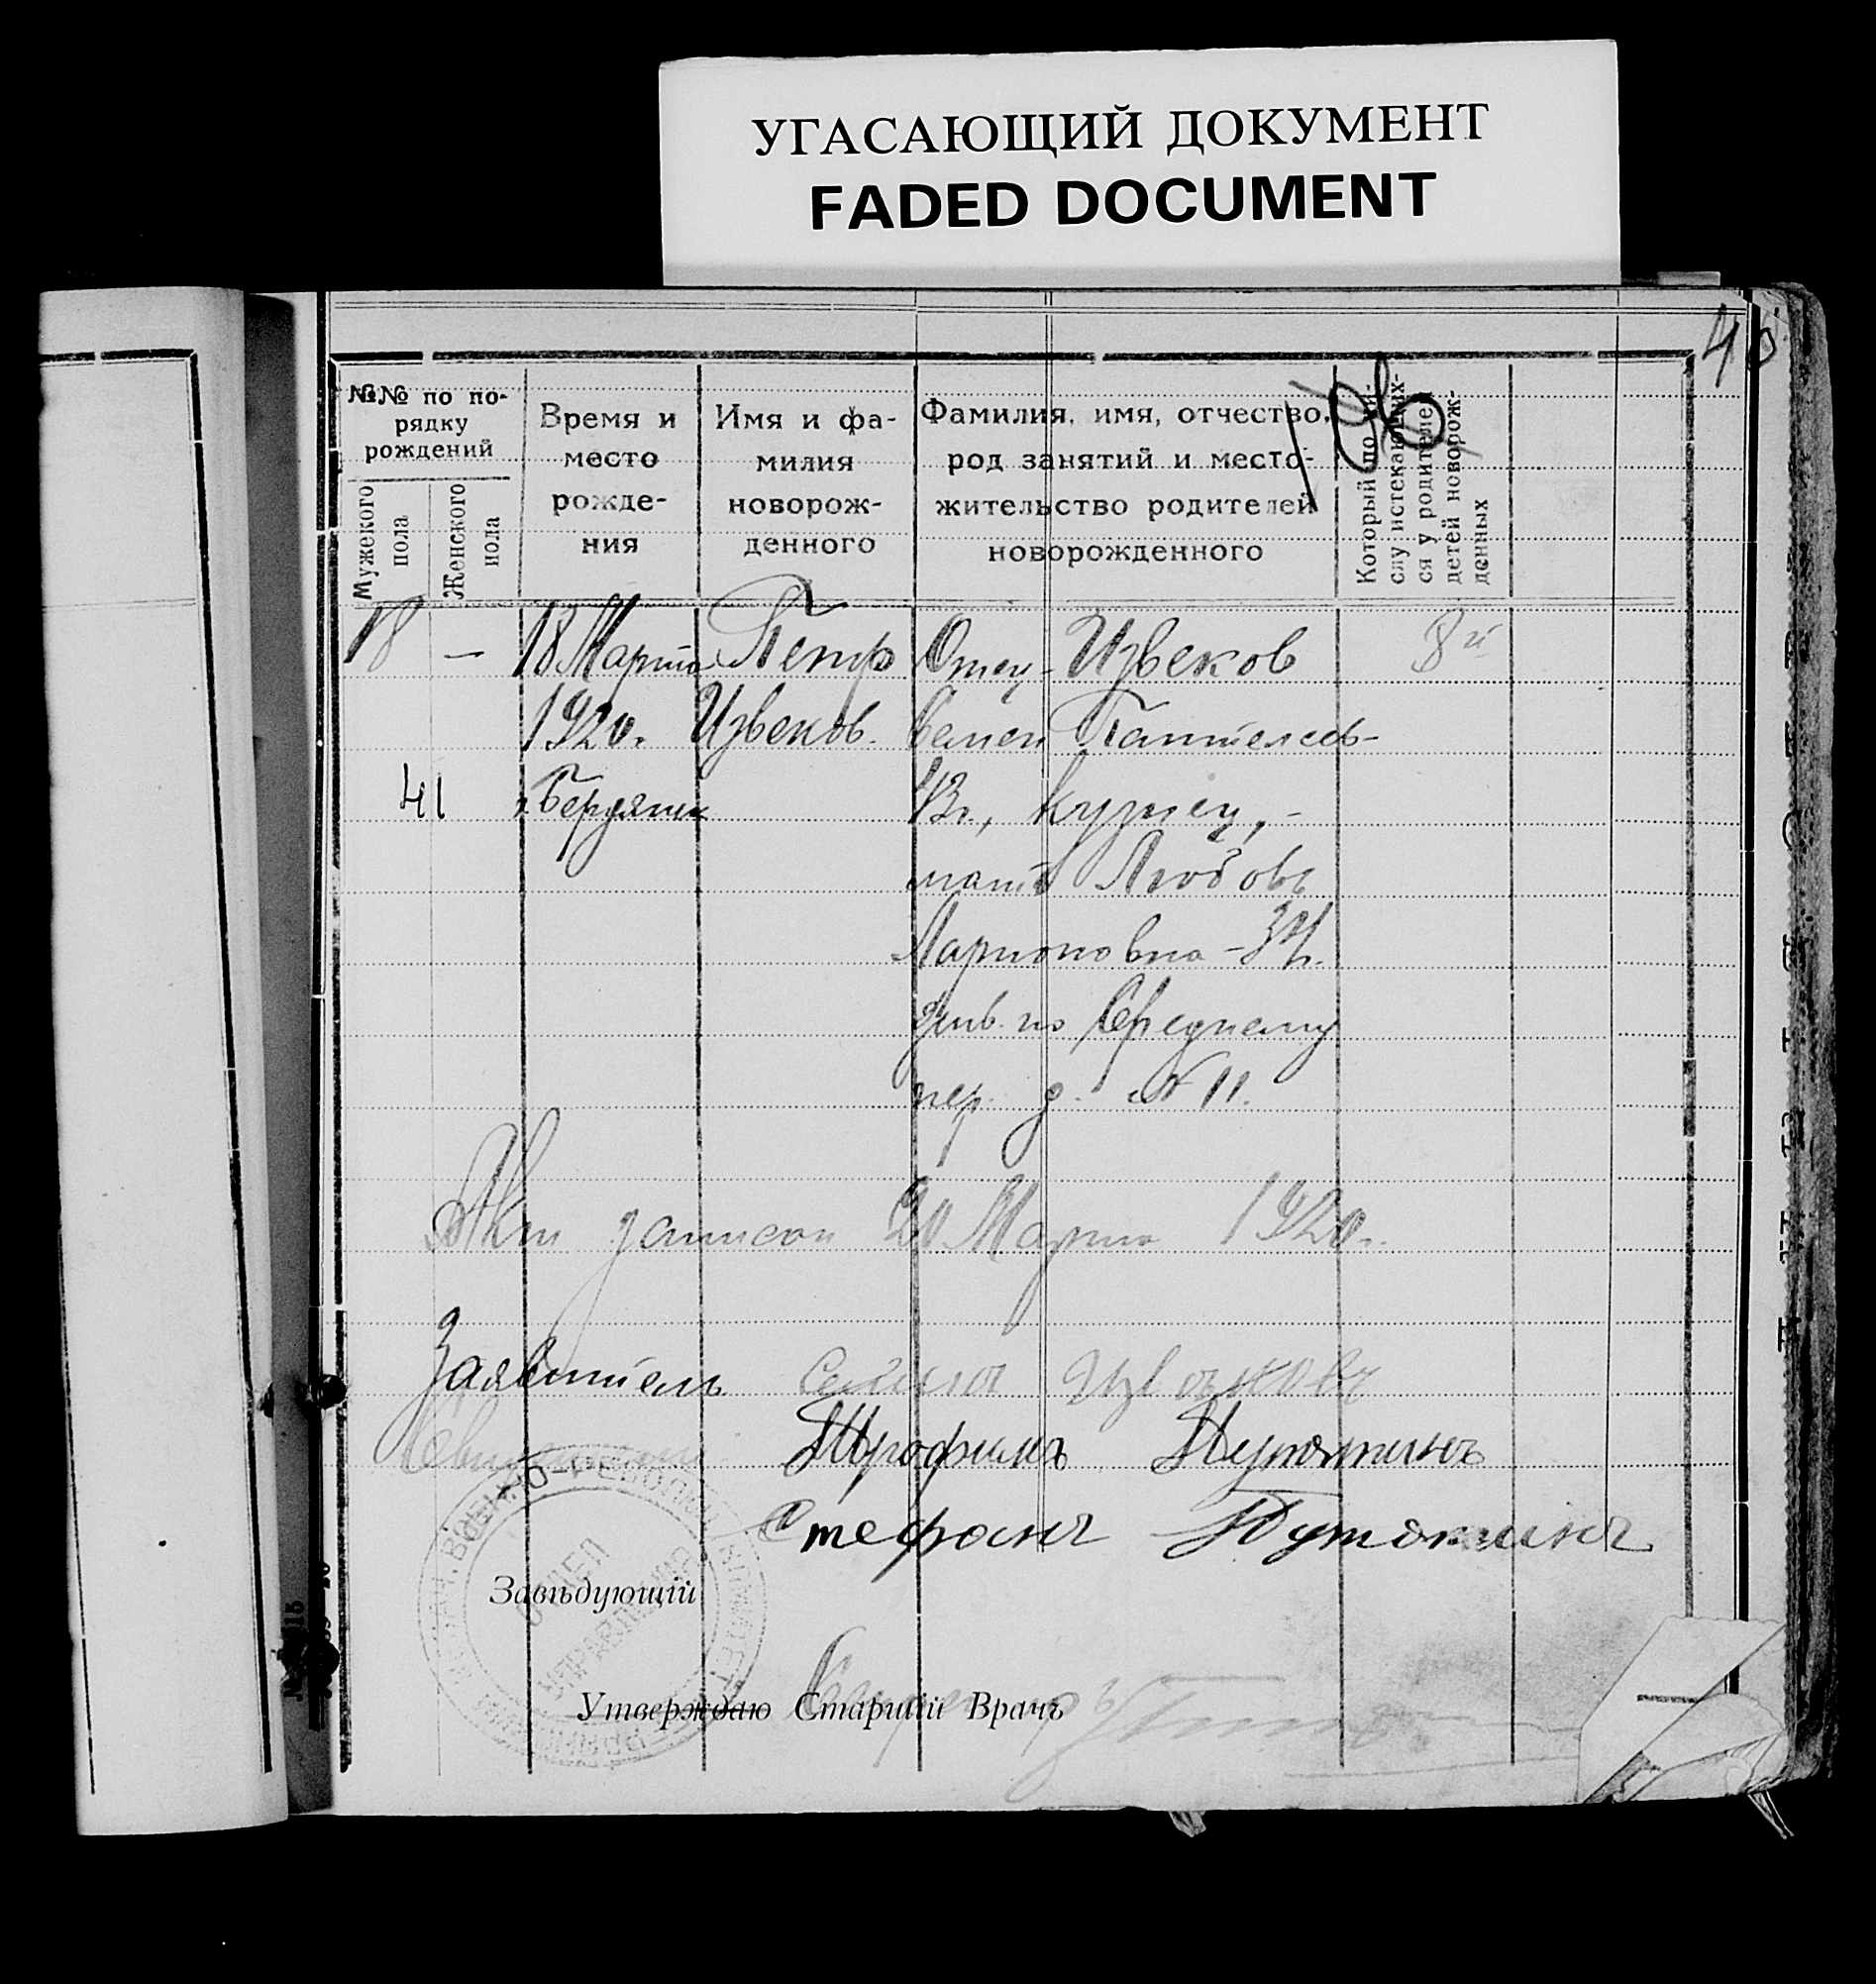 УГАСАЮЩИЙ ДОКУМЕНТ
FADED DOCUMENT
№№ по по-
рядку
рождений
Мужеского
пола
Женского
пола
Время и
место
рожде-
ния
Имя и фа-
милия
новорож-
денного
Фамилия, имя, отчество,
род занятий и место-
жительство родителей
новорожденного
Который по чи-
слу истекающих-
ся у родителей
детей новорож-
денных
18 — 18 Марта Петр Отец - Извеков 8й
1920. Извеков. Семен Пантелеев-
41 г. Бердянск 43 г., кузнец, -
мать Любовь
Ларионовна - 34 г.
жив. по Среднему
пер. д. № 11.
Акт записан 20 Марта 1920 г.
Заявитель Семен
Трофимъ
Стефанъ
ОТДЕЛ
УПРАВЛЕНИЯ
Завѣдующій
Утверждаю Старшій Врачъ